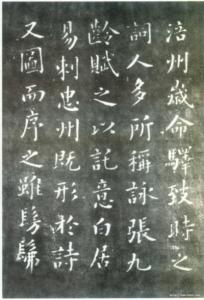 涪州歲命驛致時之
詞人多所稱詠張九
齡賦之以託意白居
易刺忠州既形於詩
又圖而序之雖髣髴